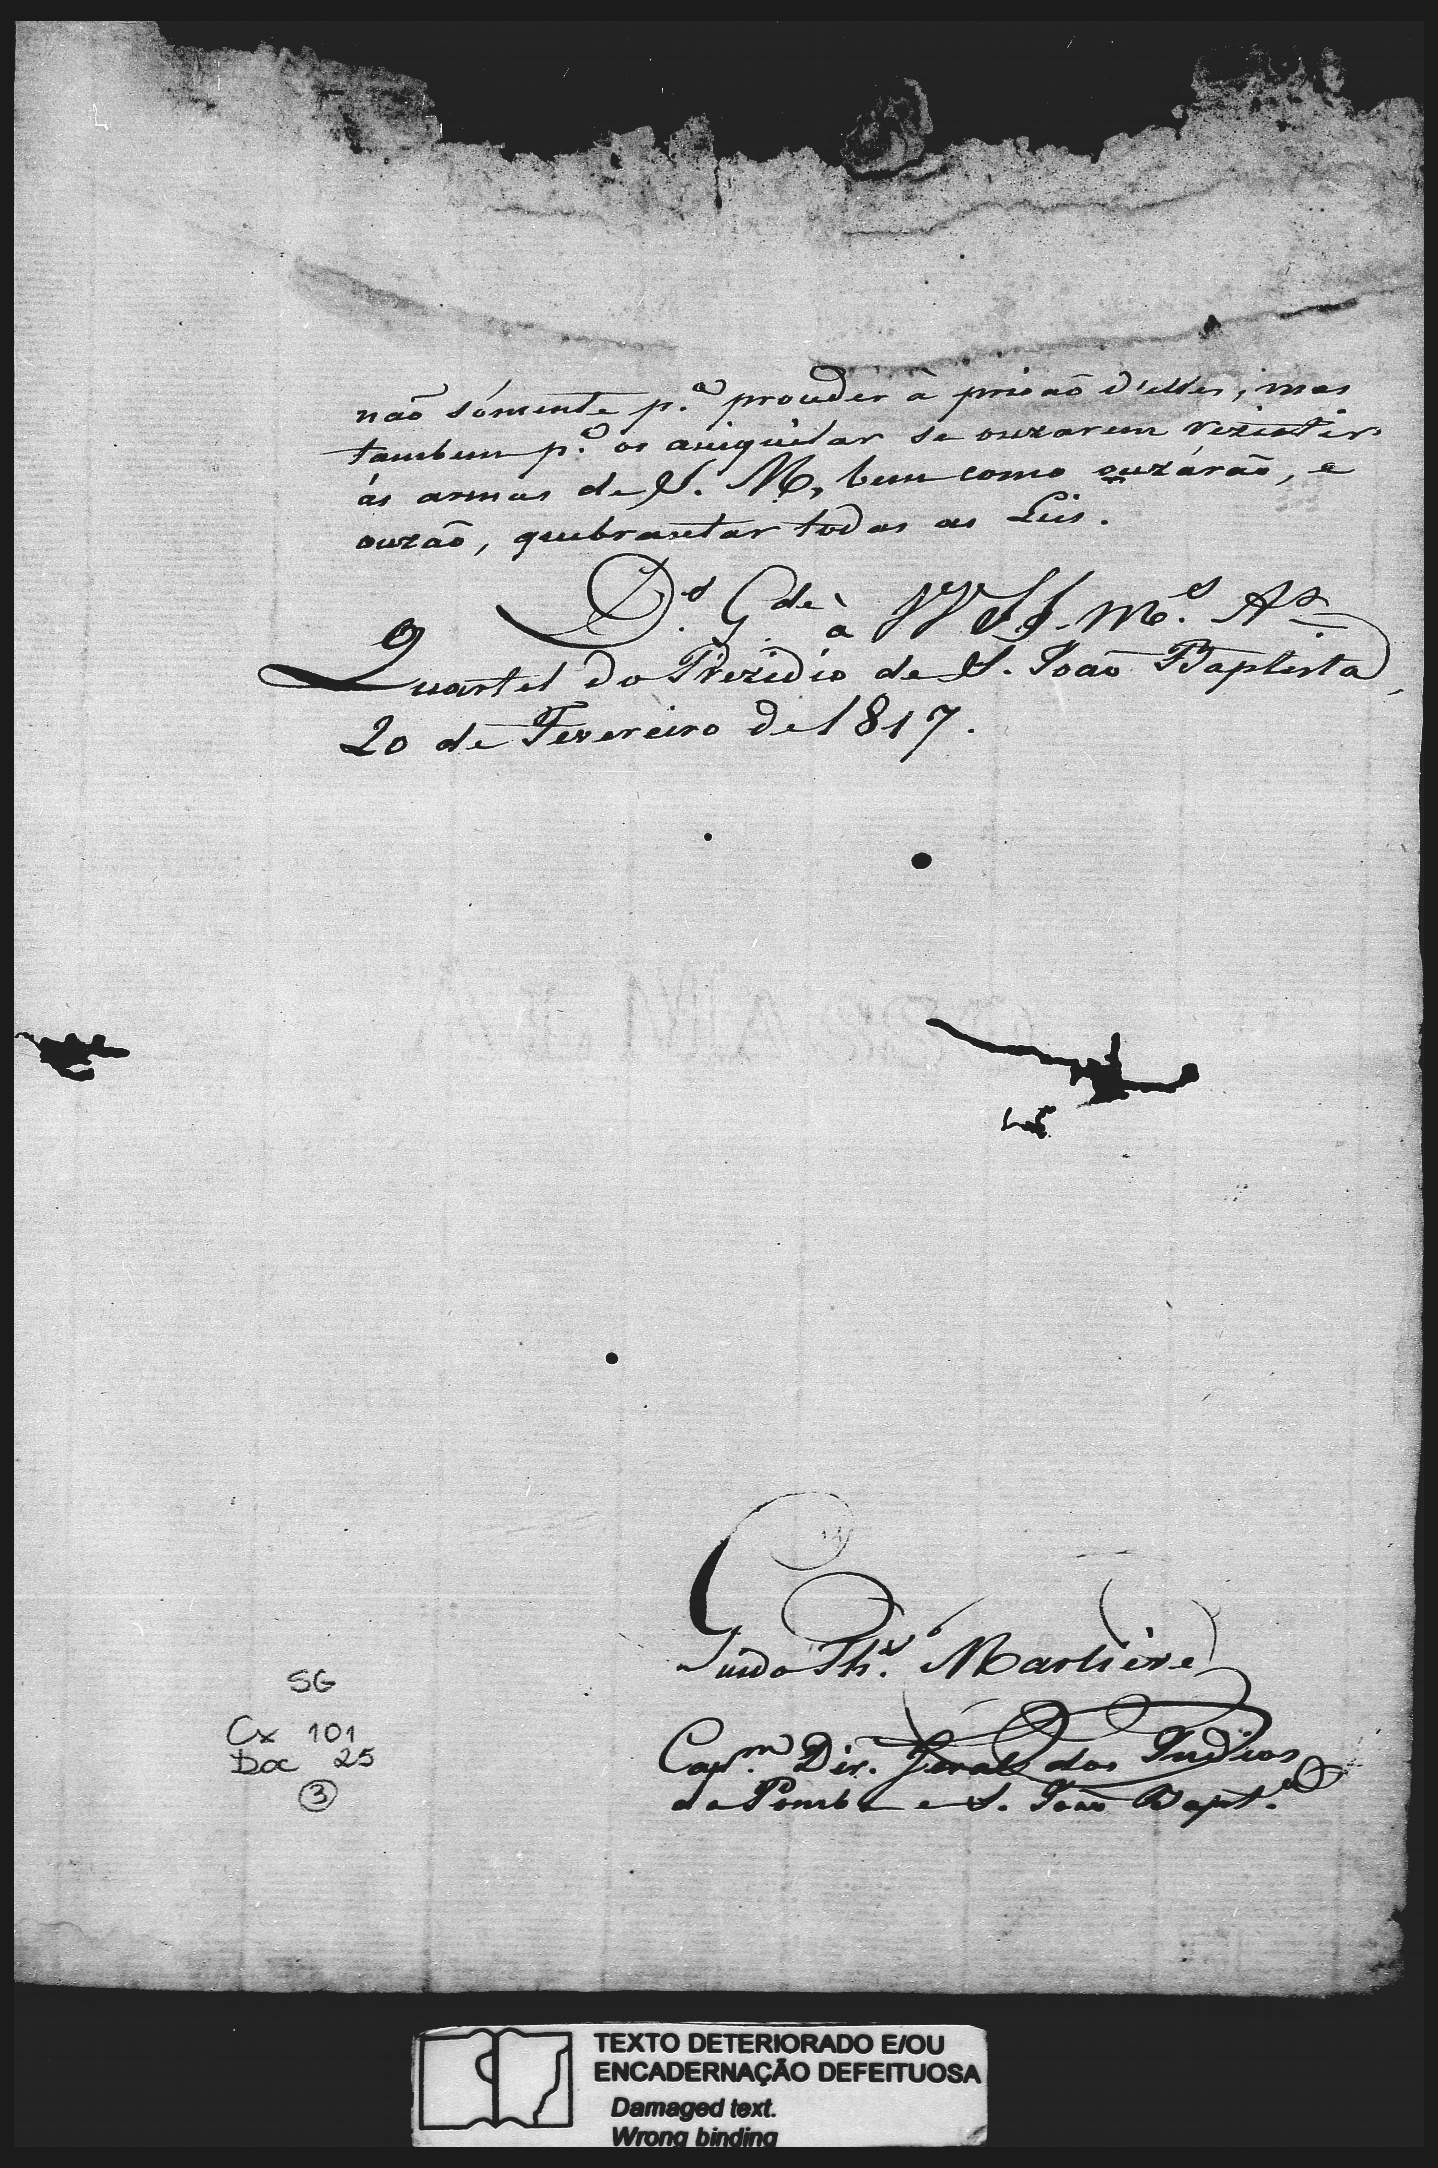 não sómente p.ª proceder à prisaõ d'elles, mas
tambem p.ª os aniquilar se ouzarem rezistir
ás armas de S. M., bem como ouzárão, e
ouzaõ, quebrantar todas as Leis.
D.s G.de à VV. SS. m.s A.s
Quartel do Prezidio de S. João Baptista,
20 de Fevereiro de 1817.
Guido Th.s Marliere
Cap.m Dir. Geral dos Indios
da Pomba e S. João Bapt.a
SG
Cx 101
Doc 25
3
TEXTO DETERIORADO E/OU
ENCADERNAÇÃO DEFEITUOSA
Damaged text.
Wrong binding